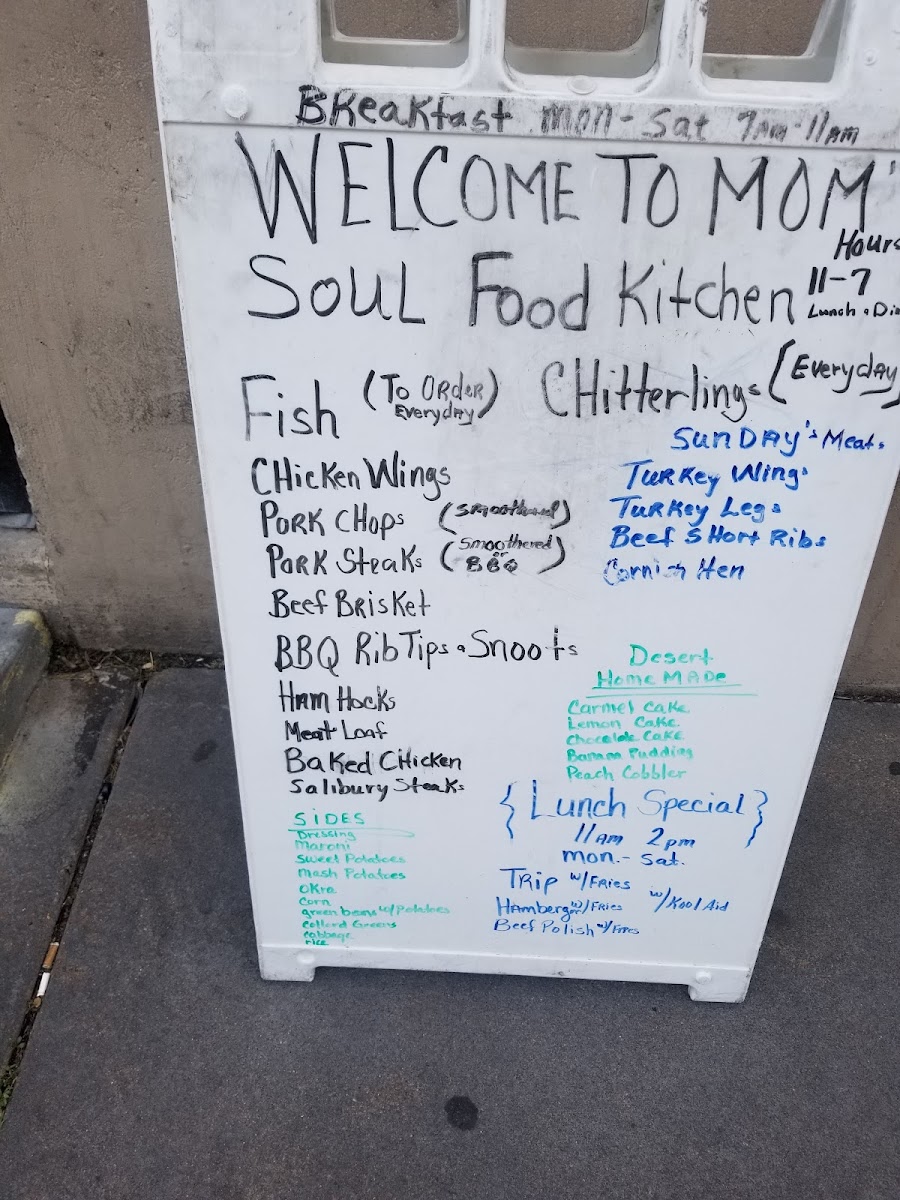 BReakfast mon-Sat 7AM-11AM
WELCOME TO MOM'
Soul Food Kitchen
Hours
11-7
Lunch & Din
Fish (To Order Everyday)
CHitterlings (Everyday)
CHicken Wings
Pork CHops (Smoothered)
Pork Steaks (Smoothered or BBQ)
Beef Brisket
BBQ Rib Tips & Snoots
Ham Hocks
Meat Loaf
Baked CHicken
Salibury Steaks
SunDAY's Meats
Turkey Wings
Turkey Legs
Beef SHort Ribs
Cornish Hen
Desert
Home MADe
Carmel Cake
Lemon Cake
Chocolate Cake
Banana Pudding
Peach Cobbler
SiDES
Dressing
Maroni
Sweet Potatoes
Mash Potatoes
Okra
Corn
green beans w/Potatoes
Collard Greens
Cabbage
rice
{Lunch Special}
11AM 2pm
mon.- Sat.
Trip w/FRies
HAmberger w/Fries
Beef Polish w/Fries
w/Kool Aid